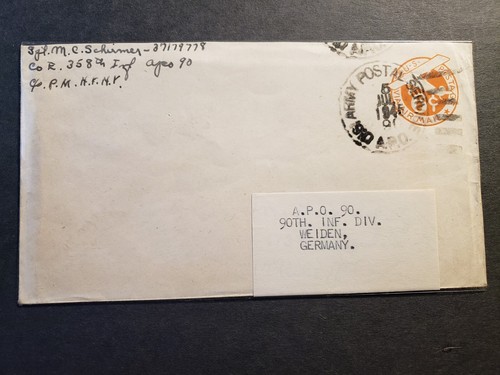 Sgt. M. C. Schirmer - 37179778
Co R. 358th Inf Apo 90
℅ P.M. N.Y. N.Y.
ARMY POSTAL
5
JUL
1945
A.P.O.
VIA AIR MAIL
A.P.O. 90.
90TH. INF. DIV.
WEIDEN,
GERMANY.